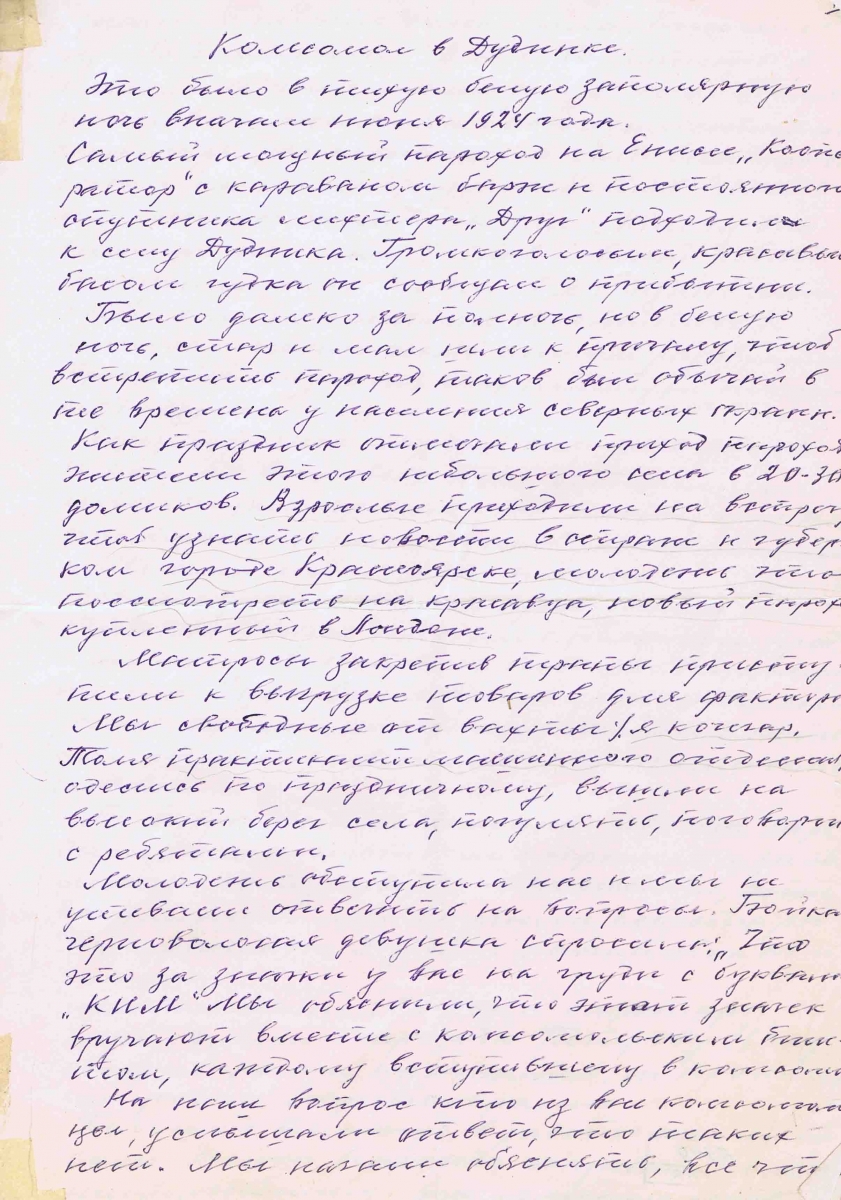 Комсомол в Дудинке.
Это было в тихую белую заполярную
ночь вначале июня 1924 года.
Самый мощный пароход на Енисее „Коопе
ратор" с караваном барж и постоянного
спутника лихтера „Друг" подходил
к селу Дудинка. Громкоголосым, красивым
басом гудка он сообщал о прибытии.
Было далеко за полночь, но в белую
ночь, стар и мал шли к причалу, чтоб
встретить пароход, таков был обычай в
те времена у населения северных окраин.
Как праздник отмечали приход парохода
жители этого небольшого села в 20-30
домиков. Взрослые приходили на встречу
чтоб узнать новости в стране и губер
ком городе Красноярске, молодежь что
посмотреть на красавца, новый парох
купленный в Лондоне.
Матросы закрепив трапы присту
пили к выгрузке товаров для фактори
Мы свободные от вахты /я кочегар.
Толя практикант машинного отделения,
оделись по праздничному, вышли на
высокий берег села, погулять, поговорит
с ребятами.
Молодежь обступила нас и мы не
успевали отвечать на вопросы. Бойкая
черноволосая девушка спросила: „Что
это за значки у вас на груди с буквами
„КИМ" Мы обяснили, что этот значек
вручают вместе с комсомольским биле-
том, каждому вступившему в комсомол
На наш вопрос кто из вас комсомол
цы, услышали ответ, что таких
нет. Мы начали обяснять, все что